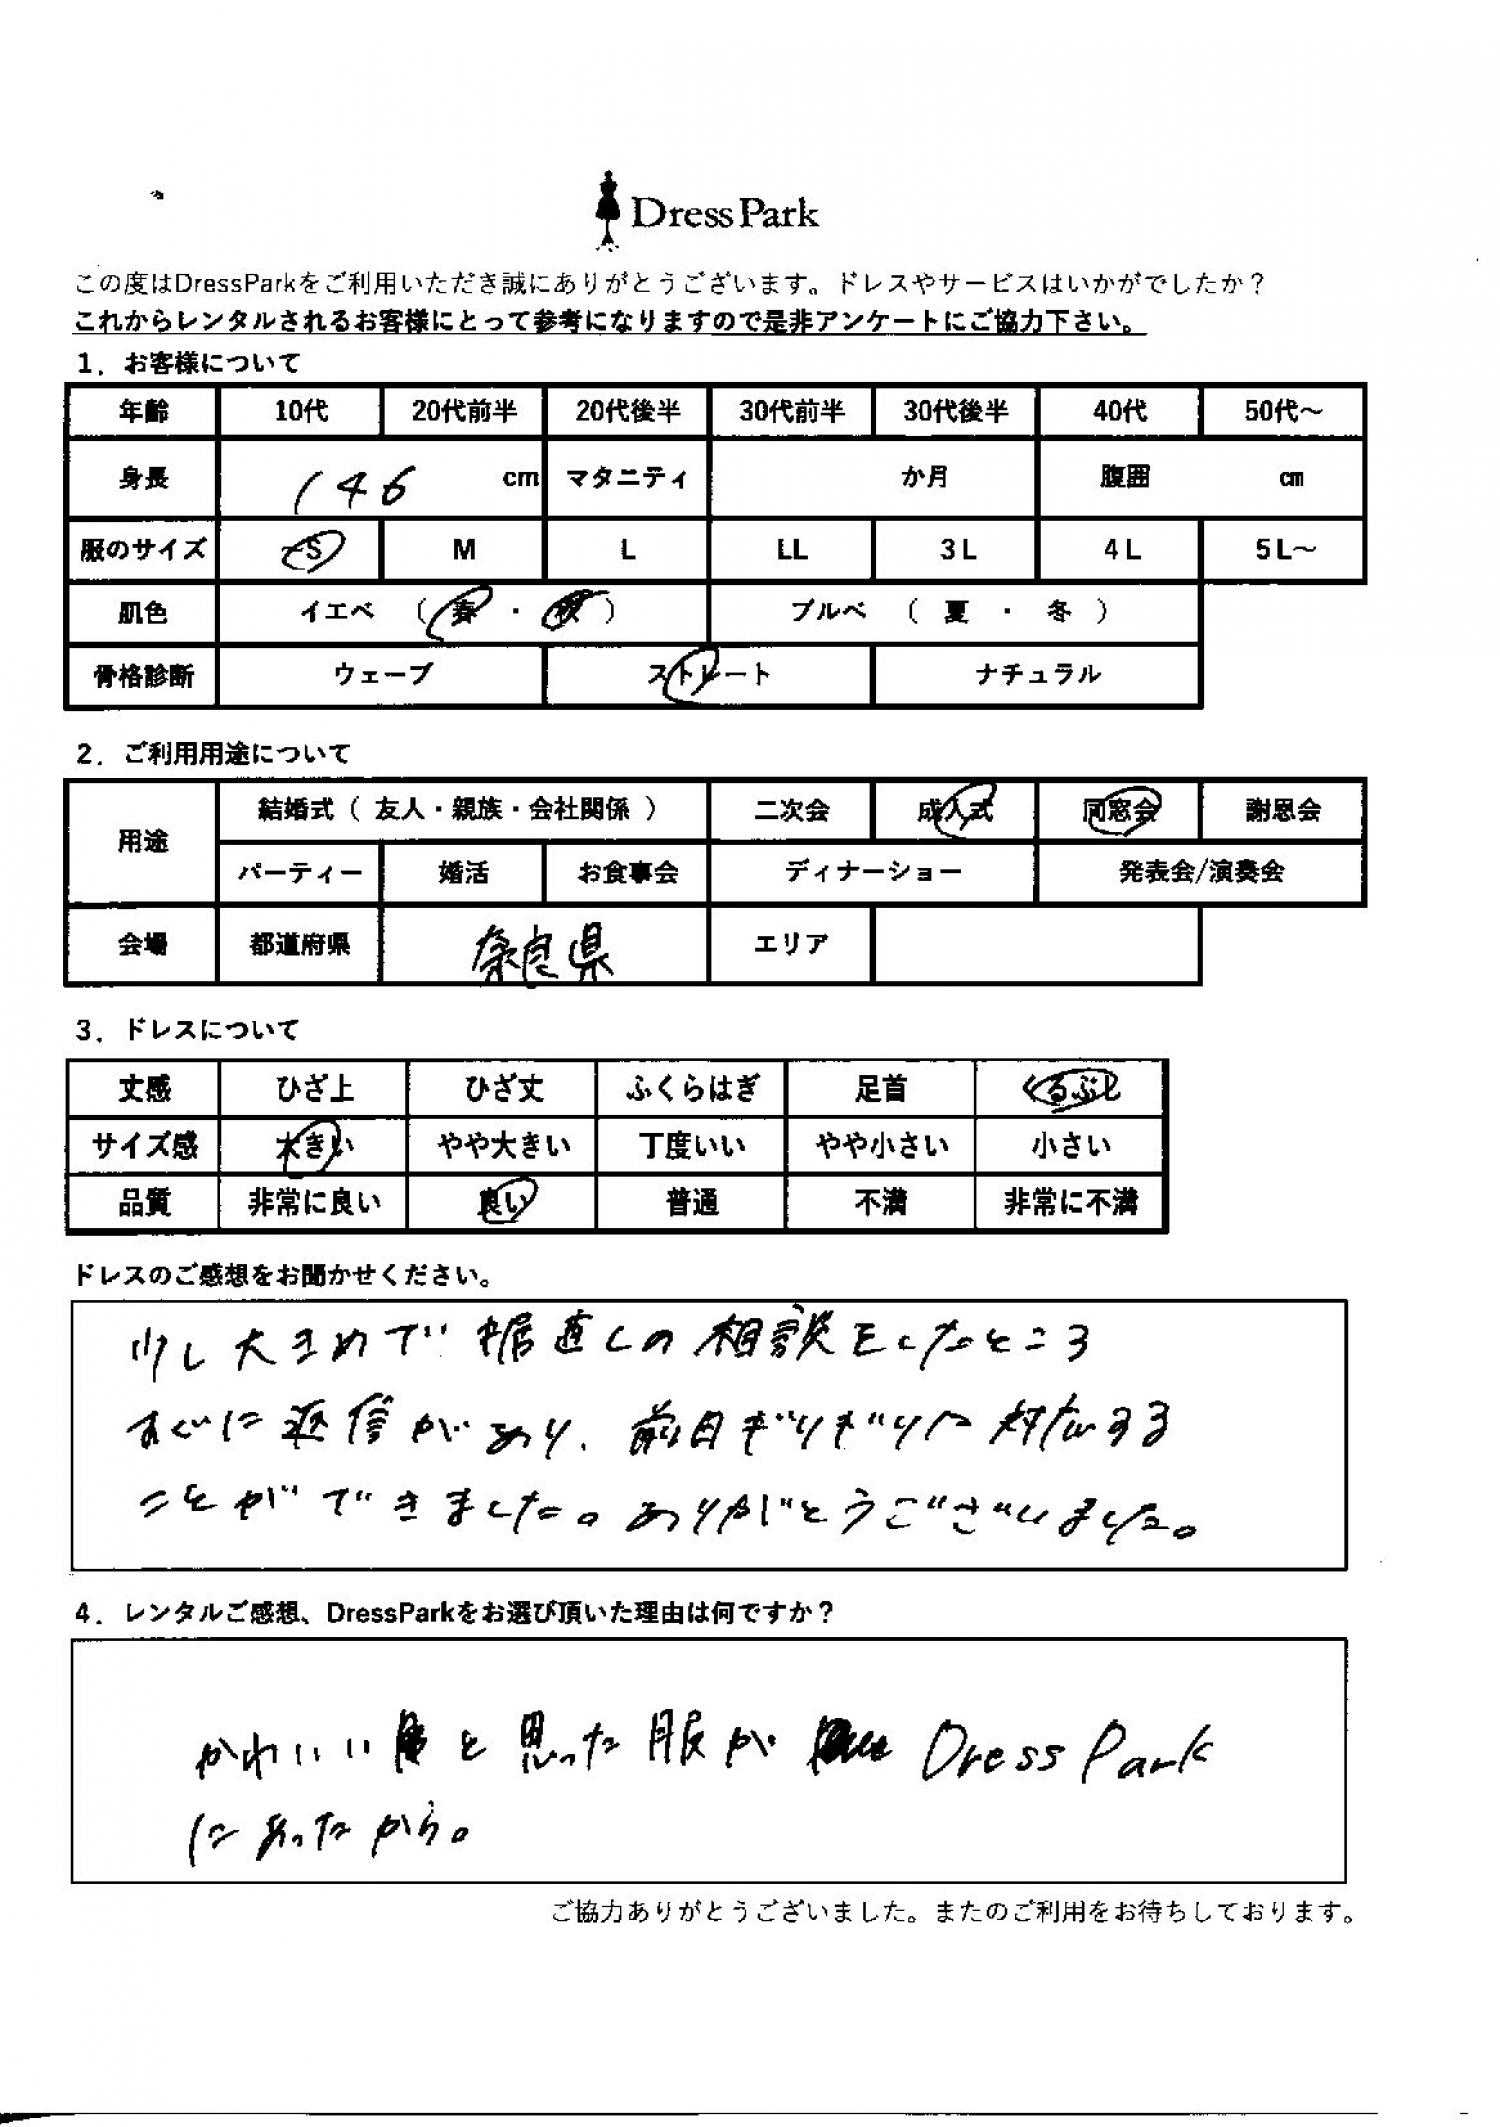 Dress Park
この度はDressParkをご利用いただき誠にありがとうございます。ドレスやサービスはいかがでしたか？
これからレンタルされるお客様にとって参考になりますので是非アンケートにご協力下さい。
1．お客様について
年齢 10代 20代前半 20代後半 30代前半 30代後半 40代 50代～
身長 146 cm マタニティ か月 腹囲 cm
服のサイズ S M L LL 3L 4L 5L～
肌色 イエベ （ 春 ・ 秋 ） ブルベ （ 夏 ・ 冬 ）
骨格診断 ウェーブ ストレート ナチュラル
2．ご利用用途について
用途 結婚式（ 友人・親族・会社関係 ） 二次会 成人式 同窓会 謝恩会
パーティー 婚活 お食事会 ディナーショー 発表会/演奏会
会場 都道府県 奈良県 エリア
3．ドレスについて
丈感 ひざ上 ひざ丈 ふくらはぎ 足首 くるぶし
サイズ感 大きい やや大きい 丁度いい やや小さい 小さい
品質 非常に良い 良い 普通 不満 非常に不満
ドレスのご感想をお聞かせください。
少し大きめで裾直しの相談をしたところ
すぐに返信があり、前日ギリギリに対応する
ことができました。ありがとうございました。
4．レンタルご感想、DressParkをお選び頂いた理由は何ですか？
かわいいと思った服が Dress Park
にあったから。
ご協力ありがとうございました。またのご利用をお待ちしております。